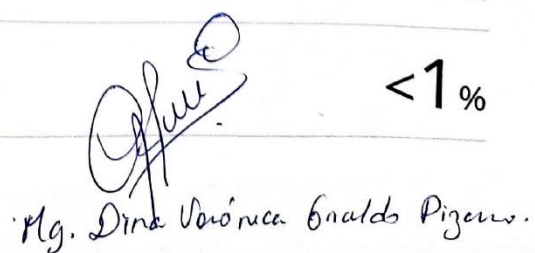 <1%
Mg. Dina Verónica Giraldo Pizarro.